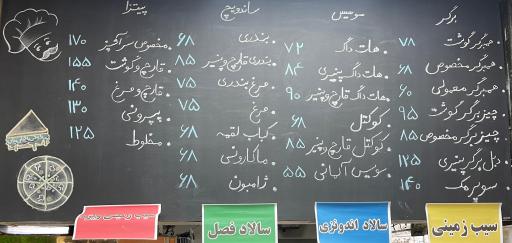 برگر
همبرگر گوشت ۷۸
همبرگر مخصوص ۶۸
همبرگر معمولی ۶۰
چیزبرگر گوشت ۹۵
چیزبرگر مخصوص ۸۵
دبل برگر پنیری ۱۲۵
سوپر مک ۱۴۰
سوسیس
هات داگ ۷۲
هات داگ پنیری ۸۴
هات داگ قارچ و پنیر ۹۰
کوکتل ۶۸
کوکتل قارچ و پنیر ۸۵
سوسیس آلمانی ۵۵
ساندویچ
بندری ۶۸
بندری قارچ و پنیر ۸۵
مرغ بندری ۷۵
مرغ ۷۵
کباب لقمه ۶۸
ماکارونی ۶۸
ژامبون ۶۸
پیتزا
مخصوص سرآشپز ۱۷۰
قارچ و گوشت ۱۵۵
قارچ و مرغ ۱۴۰
پپرونی ۱۳۰
مخلوط ۱۲۵
سیب زمینی
سالاد اندونزی
سالاد فصل
سیب زمینی ویژه